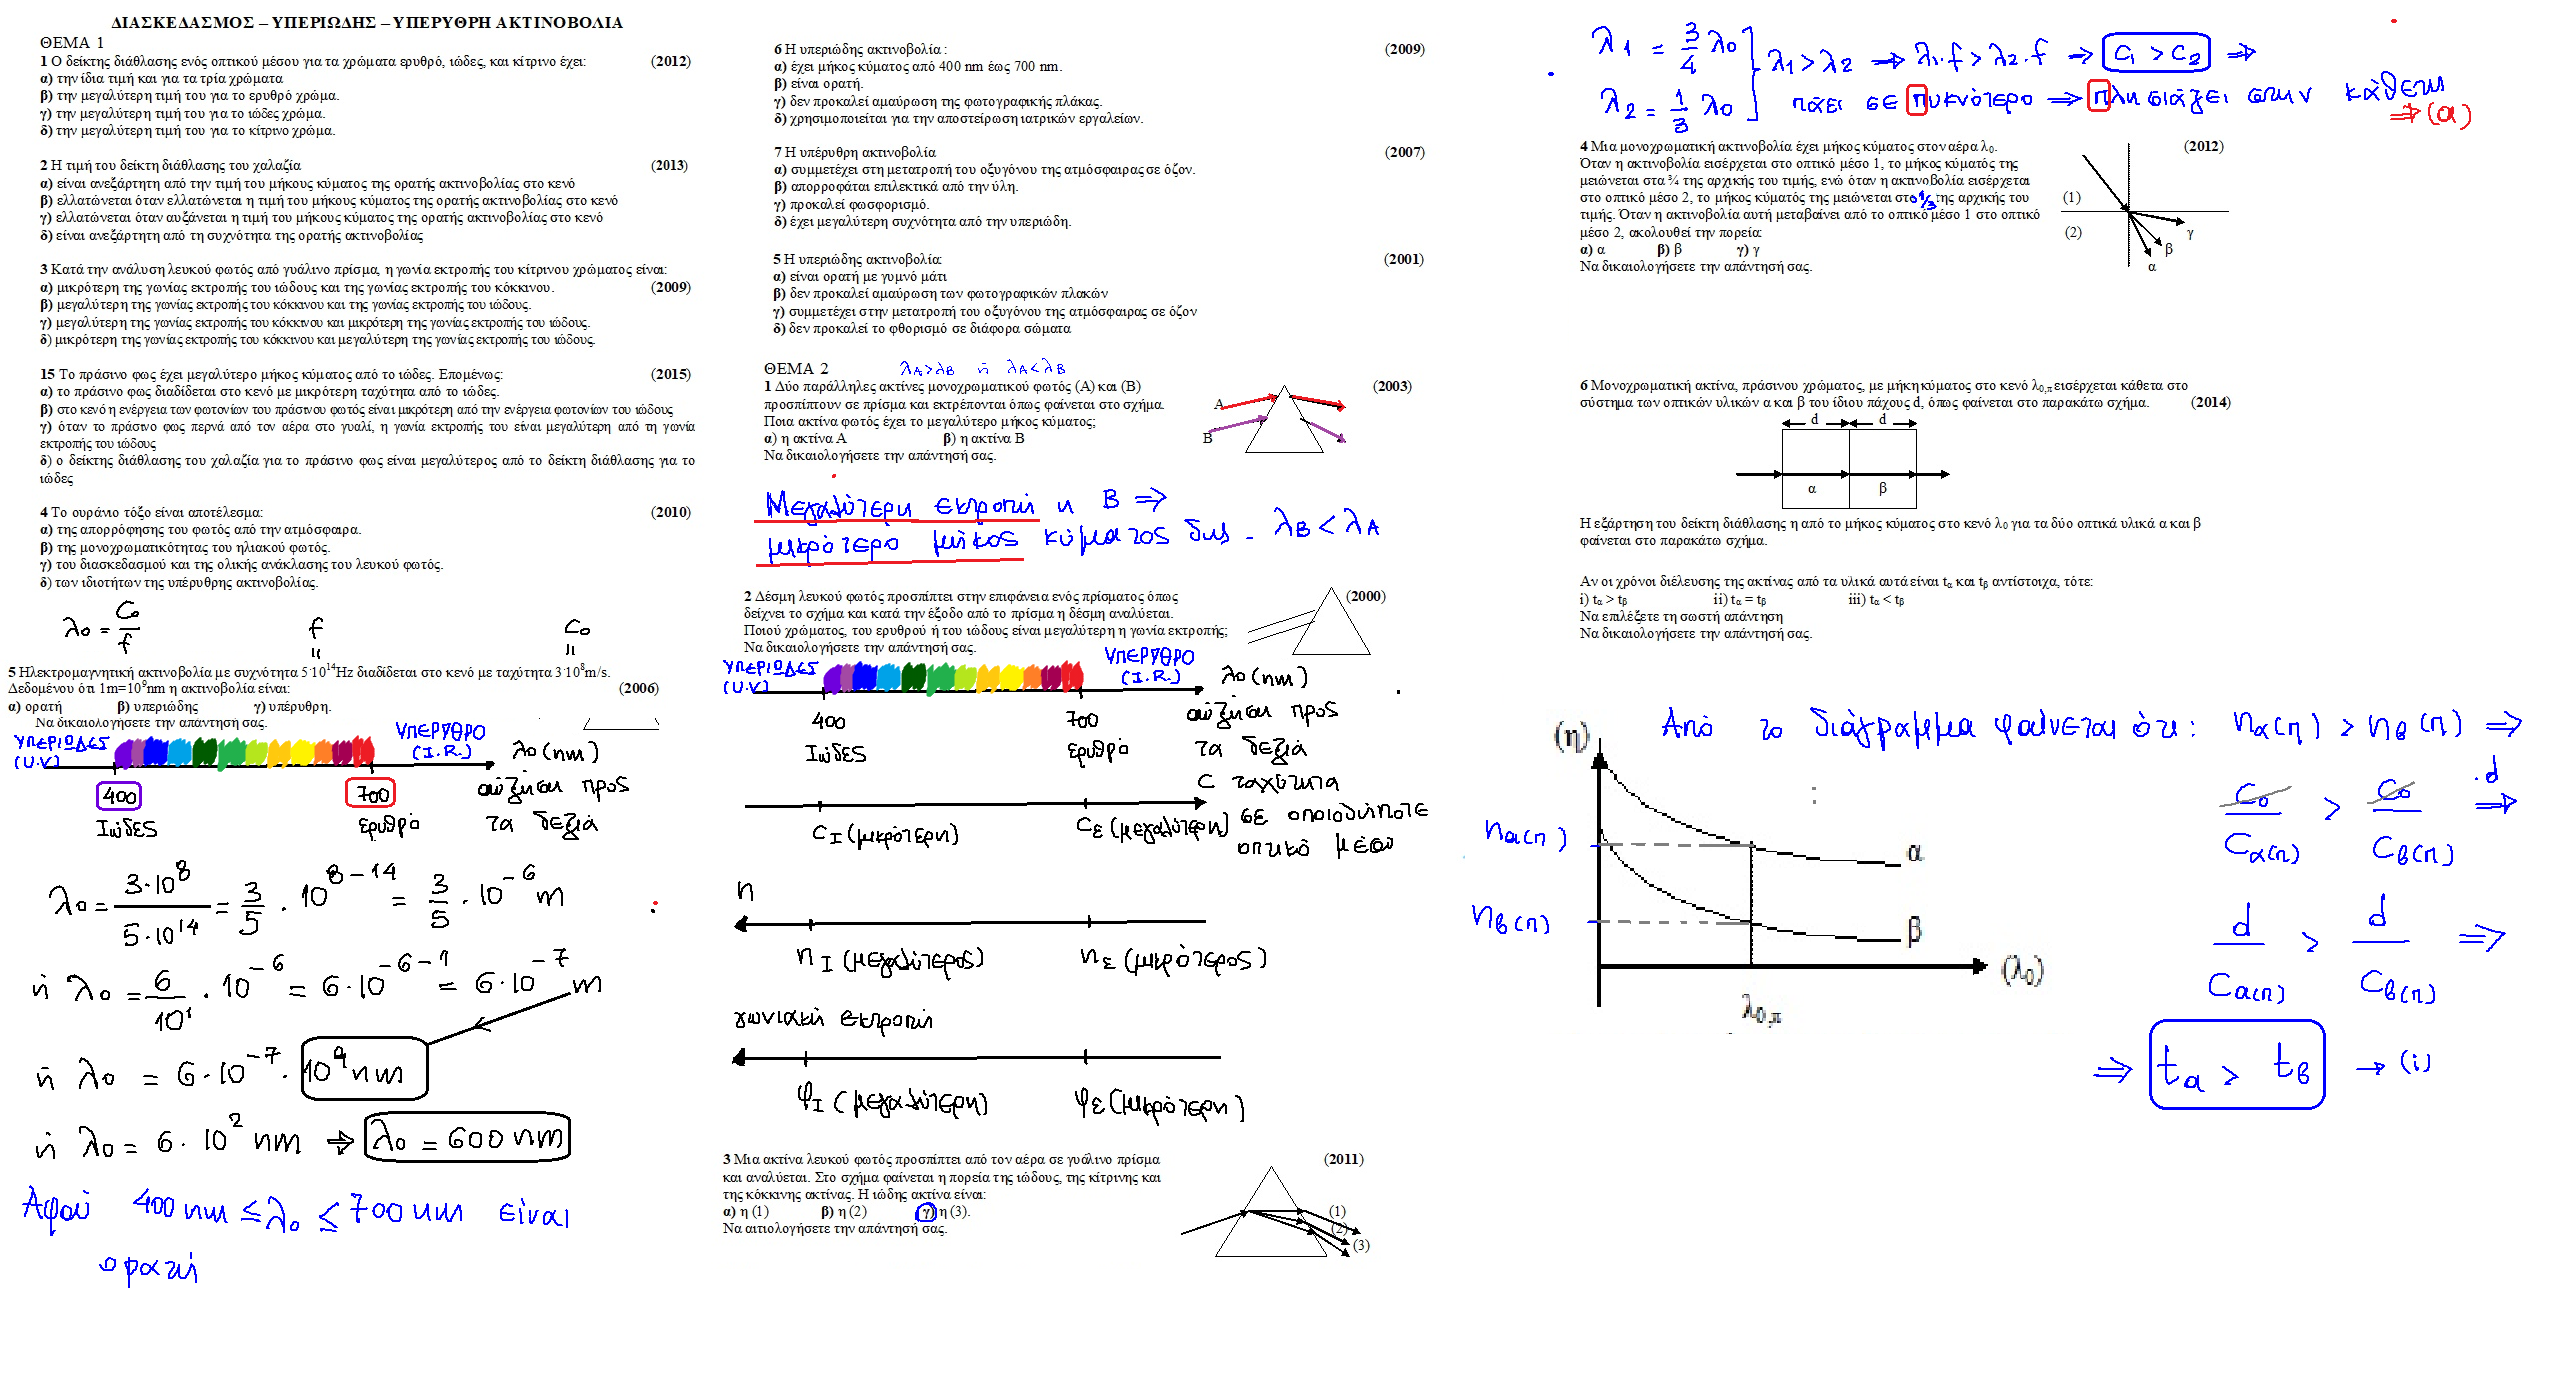 ΔΙΑΣΚΕΔΑΣΜΟΣ – ΥΠΕΡΙΩΔΗΣ – ΥΠΕΡΥΘΡΗ ΑΚΤΙΝΟΒΟΛΙΑ
ΘΕΜΑ 1
1 Ο δείκτης διάθλασης ενός οπτικού μέσου για τα χρώματα ερυθρό, ιώδες, και κίτρινο έχει: (2012)
α) την ίδια τιμή και για τα τρία χρώματα
β) την μεγαλύτερη τιμή του για το ερυθρό χρώμα.
γ) την μεγαλύτερη τιμή του για το ιώδες χρώμα.
δ) την μεγαλύτερη τιμή του για το κίτρινο χρώμα.
2 Η τιμή του δείκτη διάθλασης του χαλαζία (2013)
α) είναι ανεξάρτητη από την τιμή του μήκους κύματος της ορατής ακτινοβολίας στο κενό
β) ελλατώνεται όταν ελλατώνεται η τιμή του μήκους κύματος της ορατής ακτινοβολίας στο κενό
γ) ελλατώνεται όταν αυξάνεται η τιμή του μήκους κύματος της ορατής ακτινοβολίας στο κενό
δ) είναι ανεξάρτητη από τη συχνότητα της ορατής ακτινοβολίας
3 Κατά την ανάλυση λευκού φωτός από γυάλινο πρίσμα, η γωνία εκτροπής του κίτρινου χρώματος είναι:
α) μικρότερη της γωνίας εκτροπής του ιώδους και της γωνίας εκτροπής του κόκκινου. (2009)
β) μεγαλύτερη της γωνίας εκτροπής του κόκκινου και της γωνίας εκτροπής του ιώδους.
γ) μεγαλύτερη της γωνίας εκτροπής του κόκκινου και μικρότερη της γωνίας εκτροπής του ιώδους.
δ) μικρότερη της γωνίας εκτροπής του κόκκινου και μεγαλύτερη της γωνίας εκτροπής του ιώδους.
15 Το πράσινο φως έχει μεγαλύτερο μήκος κύματος από το ιώδες. Επομένως: (2015)
α) το πράσινο φως διαδίδεται στο κενό με μικρότερη ταχύτητα από το ιώδες.
β) στο κενό η ενέργεια των φωτονίων του πράσινου φωτός είναι μικρότερη από την ενέργεια φωτονίων του ιώδους
γ) όταν το πράσινο φως περνά από τον αέρα στο γυαλί, η γωνία εκτροπής του είναι μεγαλύτερη από τη γωνία
εκτροπής του ιώδους
δ) ο δείκτης διάθλασης του χαλαζία για το πράσινο φως είναι μεγαλύτερος από το δείκτη διάθλασης για το
ιώδες
4 Το ουράνιο τόξο είναι αποτέλεσμα: (2010)
α) της απορρόφησης του φωτός από την ατμόσφαιρα.
β) της μονοχρωματικότητας του ηλιακού φωτός.
γ) του διασκεδασμού και της ολικής ανάκλασης του λευκού φωτός.
δ) των ιδιοτήτων της υπέρυθρης ακτινοβολίας.
λ₀ = C₀/f f C₀
5 Ηλεκτρομαγνητική ακτινοβολία με συχνότητα 5·10¹⁴Hz διαδίδεται στο κενό με ταχύτητα 3·10⁸m/s.
Δεδομένου ότι 1m=10⁹nm η ακτινοβολία είναι: (2006)
α) ορατή β) υπεριώδης γ) υπέρυθρη.
Να δικαιολογήσετε την απάντησή σας.
ΥΠΕΡΙΩΔΕΣ (U.V) ΥΠΕΡΥΘΡΟ (I.R.) λ₀(nm)
400 700 αύξηση προς
Ιώδες ερυθρό τα δεξιά
λ₀ = 3·10⁸/5·10¹⁴ = 3/5 · 10⁸⁻¹⁴ = 3/5 · 10⁻⁶ m
ή λ₀ = 6/10¹ · 10⁻⁶ = 6·10⁻⁶⁻¹ = 6·10⁻⁷ m
ή λ₀ = 6·10⁻⁷ · 10⁹nm
ή λ₀ = 6·10² nm ⇒ λ₀ = 600 nm
Αφού 400 nm ≤ λ₀ ≤ 700 nm είναι
ορατή
6 Η υπεριώδης ακτινοβολία : (2009)
α) έχει μήκος κύματος από 400 nm έως 700 nm.
β) είναι ορατή.
γ) δεν προκαλεί αμαύρωση της φωτογραφικής πλάκας.
δ) χρησιμοποιείται για την αποστείρωση ιατρικών εργαλείων.
7 Η υπέρυθρη ακτινοβολία (2007)
α) συμμετέχει στη μετατροπή του οξυγόνου της ατμόσφαιρας σε όζον.
β) απορροφάται επιλεκτικά από την ύλη.
γ) προκαλεί φωσφορισμό.
δ) έχει μεγαλύτερη συχνότητα από την υπεριώδη.
5 Η υπεριώδης ακτινοβολία: (2001)
α) είναι ορατή με γυμνό μάτι
β) δεν προκαλεί αμαύρωση των φωτογραφικών πλακών
γ) συμμετέχει στην μετατροπή του οξυγόνου της ατμόσφαιρας σε όζον
δ) δεν προκαλεί το φθορισμό σε διάφορα σώματα
ΘΕΜΑ 2 λA>λB ή λA<λB
1 Δύο παράλληλες ακτίνες μονοχρωματικού φωτός (Α) και (Β) (2003)
προσπίπτουν σε πρίσμα και εκτρέπονται όπως φαίνεται στο σχήμα.
Ποια ακτίνα φωτός έχει το μεγαλύτερο μήκος κύματος;
α) η ακτίνα Α β) η ακτίνα Β
Να δικαιολογήσετε την απάντησή σας.
A
B
Μεγαλύτερη εκτροπή η Β ⇒
μικρότερο μήκος κύματος δης. λB < λA
2 Δέσμη λευκού φωτός προσπίπτει στην επιφάνεια ενός πρίσματος όπως (2000)
δείχνει το σχήμα και κατά την έξοδο από το πρίσμα η δέσμη αναλύεται.
Ποιού χρώματος, του ερυθρού ή του ιώδους είναι μεγαλύτερη η γωνία εκτροπής;
Να δικαιολογήσετε την απάντησή σας.
ΥΠΕΡΙΩΔΕΣ (U.V) ΥΠΕΡΥΘΡΟ (I.R.) λ₀(nm)
400 700 αύξηση προς
Ιώδες ερυθρό τα δεξιά
C ταχύτητα
CΙ (μικρότερη) Cε (μεγαλύτερη) σε οποιοδήποτε
οπτικό μέσο
n
nΙ (μεγαλύτερος) nε (μικρότερος)
γωνιακή εκτροπή
φΙ (μεγαλύτερη) φε (μικρότερη)
3 Μια ακτίνα λευκού φωτός προσπίπτει από τον αέρα σε γυάλινο πρίσμα (2011)
και αναλύεται. Στο σχήμα φαίνεται η πορεία της ιώδους, της κίτρινης και
της κόκκινης ακτίνας. Η ιώδης ακτίνα είναι:
α) η (1) β) η (2) γ) η (3).
Να αιτιολογήσετε την απάντησή σας.
(1)
(2)
(3)
λ₁ = 3/4 λ₀
λ₂ = 1/3 λ₀
λ₁ > λ₂ ⇒ λ₁·f > λ₂·f ⇒ C₁ > C₂ ⇒
πάει σε πυκνότερο ⇒ πλησιάζει στην κάθετη
⇒ (α)
4 Μια μονοχρωματική ακτινοβολία έχει μήκος κύματος στον αέρα λ₀. (2012)
Όταν η ακτινοβολία εισέρχεται στο οπτικό μέσο 1, το μήκος κύματός της
μειώνεται στα ¾ της αρχικής του τιμής, ενώ όταν η ακτινοβολία εισέρχεται
στο οπτικό μέσο 2, το μήκος κύματός της μειώνεται στο 1/3 της αρχικής του
τιμής. Όταν η ακτινοβολία αυτή μεταβαίνει από το οπτικό μέσο 1 στο οπτικό
μέσο 2, ακολουθεί την πορεία:
α) α β) β γ) γ
Να δικαιολογήσετε την απάντησή σας.
(1)
(2)
γ
β
α
6 Μονοχρωματική ακτίνα, πράσινου χρώματος, με μήκη κύματος στο κενό λ₀,π εισέρχεται κάθετα στο
σύστημα των οπτικών υλικών α και β του ίδιου πάχους d, όπως φαίνεται στο παρακάτω σχήμα. (2014)
d d
α β
Η εξάρτηση του δείκτη διάθλασης η από το μήκος κύματος στο κενό λ₀ για τα δύο οπτικά υλικά α και β
φαίνεται στο παρακάτω σχήμα.
Αν οι χρόνοι διέλευσης της ακτίνας από τα υλικά αυτά είναι tα και tβ αντίστοιχα, τότε:
i) tα > tβ ii) tα = tβ iii) tα < tβ
Να επιλέξετε τη σωστή απάντηση
Να δικαιολογήσετε την απάντησή σας.
Από το διάγραμμα φαίνεται ότι: nα(π) > nβ(π) ⇒
(η)
nα(π)
α
nβ(π)
β
(λ₀)
λ₀,π
C₀/Cα(π) > C₀/Cβ(π) ·d ⇒
d/Cα(π) > d/Cβ(π) ⇒
⇒ tα > tβ → (i)